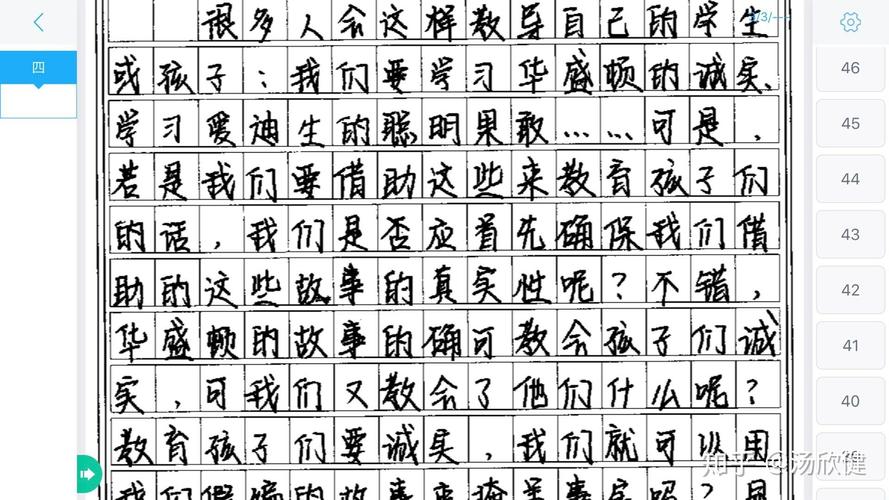 很多人会这样教导自己的学生
3/3/--
四
46
或孩子：我们要学习华盛顿的诚实、
学习爱迪生的聪明果敢……可是，
45
若是我们要借助这些来教育孩子们
44
的话，我们是否应首先确保我们借
43
助的这些故事的真实性呢？不错，
42
华盛顿的故事的确可教会孩子们诚
41
实，可我们又教会了他们什么呢？
40
教育孩子们要诚实，我们就可以用
知乎 @汤欣健
我们假编的故事来掩盖事实吗？是